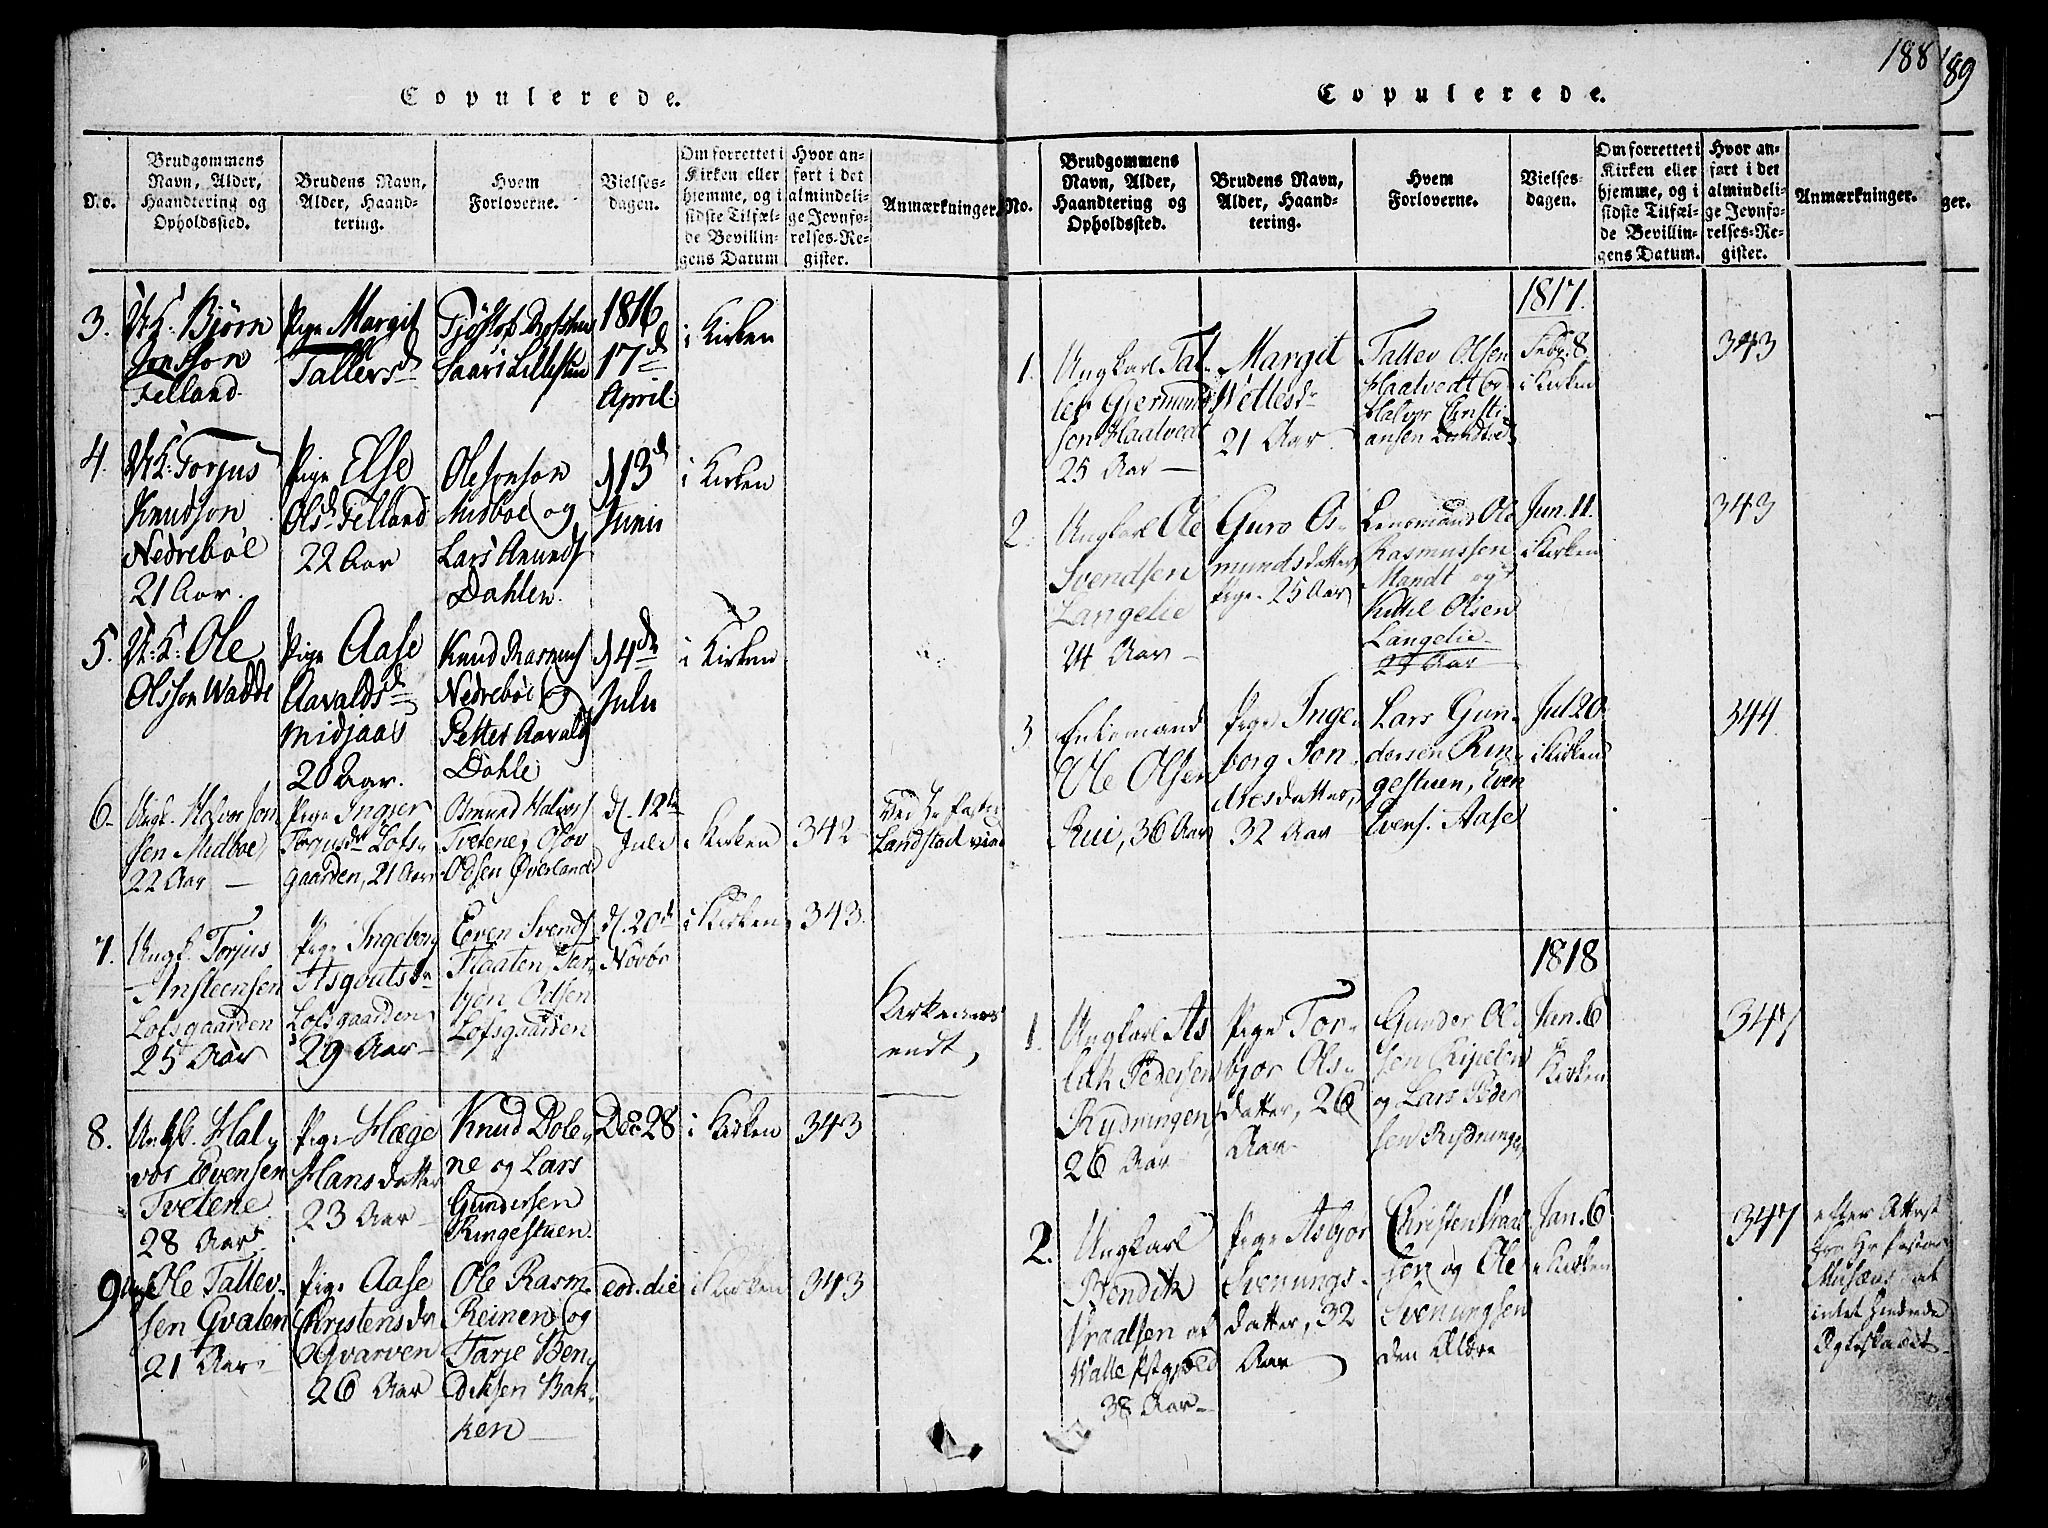 Copulerede.
No.
Brudgommens
Navn, Alder,
Haandtering og
Opholdssted.
Brudens Navn,
Alder, Haand-
tering.
Hvem
Forloverne.
Vielses-
dagen.
Om forrettet i
Kirken eller
hjemme, og i
sidste Tilfæl-
de Bevillin-
gens Datum
Hvor an-
ført i det
almindeli-
ge Jevnfø-
relses-Re-
gister.
Anmærkninger.
3.
Bjørn
Jonsson
Felland.
Pige Margit
Tallefsd
Saari Lillestue
1816
17d
April.
i Kirken
4.
Torjus
Knudson
Nedrebøe
21 Aar.
Pige Else
Olsd Felland
22 Aar
Ole Jonson
Midbøe og
Lars Amunds
Dahlen.
13d
Junii
i Kirken
5.
Ole
Olsson Wadde
Pige Aase
Aavaldsd
Midjaas
20 Aar.
Knud Rasmus
Nedrebøe og
Petter Aavalds
Dahle
4de
Julii
i Kirken
6.
Ungk. Halvor Jon
sen Midboe,
22 Aar —
Pige Ingjer
Torjusdr Lofs-
gaarden, 21 Aar
Osmund Halvors
Tvetene, Olov
Odsen Øverland
d. 12te
Juli
i Kirken
342
Ved Hr Pastor
Landstad
7.
Ungk. Torjus
Ansteensen
Lofsgaarden
25 Aar
Pige Ingeborg
Asgoutsdr
Lofsgaarden
29 Aar—
Even Svends
Flaaten, Tar-
bjon Odsen
Lofsgaarden
d. 20d
Novbr
i Kirken
343.
8.
Ungk. Hal-
vor Evensen
Tvetene
28 Aar
Pige Hæge
Hansdatter
23 Aar
Knud Dole-
ne og Lars
Gundersen
Ringestuen.
Dec 28
i Kirken
343
9
Ole Tallev-
sen Gvalen
21 Aar
Pige Aase
Christensdr
Qvarven
26 Aar
Ole Rasm.
Reinen og
Tarje Ben-
diksen Bak-
ken —
eod. die
i Kirken
343
188
Copulerede.
No.
Brudgommens
Navn, Alder,
Haandtering og
Opholdssted.
Brudens Navn,
Alder, Haand-
tering.
Hvem
Forloverne.
Vielses-
dagen.
Om forrettet i
Kirken eller
hjemme, og i
sidste Tilfæl-
de Bevillin-
gens Datum.
Hvor an-
ført i det
almindeli-
ge Jevnfø-
relses-Re-
gister.
Anmærkninger.
1817.
1.
Ungkarl Tal-
lev Gjermund
sen Haatvedt
25 Aar —
Margit
Wetlesdr
21 Aar
Tallev Olsen
Haatvedt og
Halvor Christi-
ansen Lundtved
Febr. 8.
i Kirken
343
2.
Ungkarl Ole
Svendsen
Langelie
24 Aar —
Guro As-
mundsdatter
Pige. 25 Aar
Lensmand Ole
Rasmussen
Mandt og
Kittil Olsen
Langelie
24 Aar
Jun. 11.
i Kirken
343
3
Enkemand
Ole Olsen
Rui, 36 Aar
Pige Inge-
borg Jon-
dresdatter,
32 Aar
Lars Gun-
dersen Rin-
gestuen, Even
Evens. Aase
Jul 20
i Kirken
344.
1818
1.
Ungkarl As
lak Pedersen
Rydningen,
26 Aar
Pige Tor-
bjor Ols-
datter, 26
Aar
Gunder Ol-
sen Ripelen
og Lars Peder
sen Rydningen
Jan. 6
i Kirken
347
2.
Ungkarl
Bendik
Vraalsen af
Walle Pstgjeld
38 Aar—
Pige Asbjor
Svenungs-
datter, 32
Aar
Christen Vraal
sen og Ole
Svenungsen
den Ældre
Jan. 6
i Kirken
347
efter Attest
fra Hr Pastor
Musæus at
intet hindrede
Ægteskabet.
189
ger.